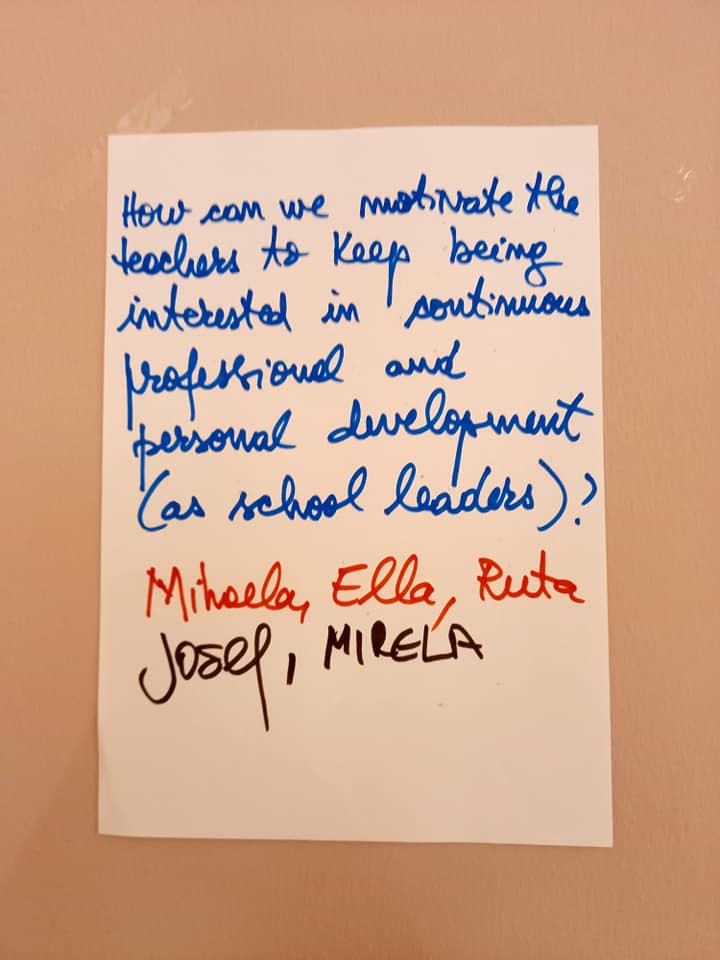 How can we motivate the
teachers to keep being
interested in continuous
professional and
personal development
(as school leaders)?
Mihaela, Ella, Ruta
Josef, MIRELA